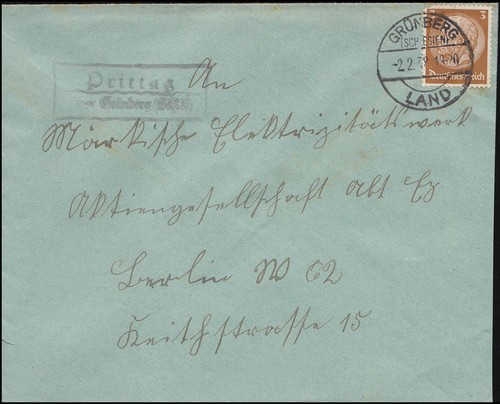 GRÜNBERG
(SCHLESIEN)
LAND
3
Deutsches Reich
Prittag
Grünberg
An
Märkische Elektrizitätswerk
Aktiengesellschaft Abt Ez
Berlin W 62
Keithstrasse 15